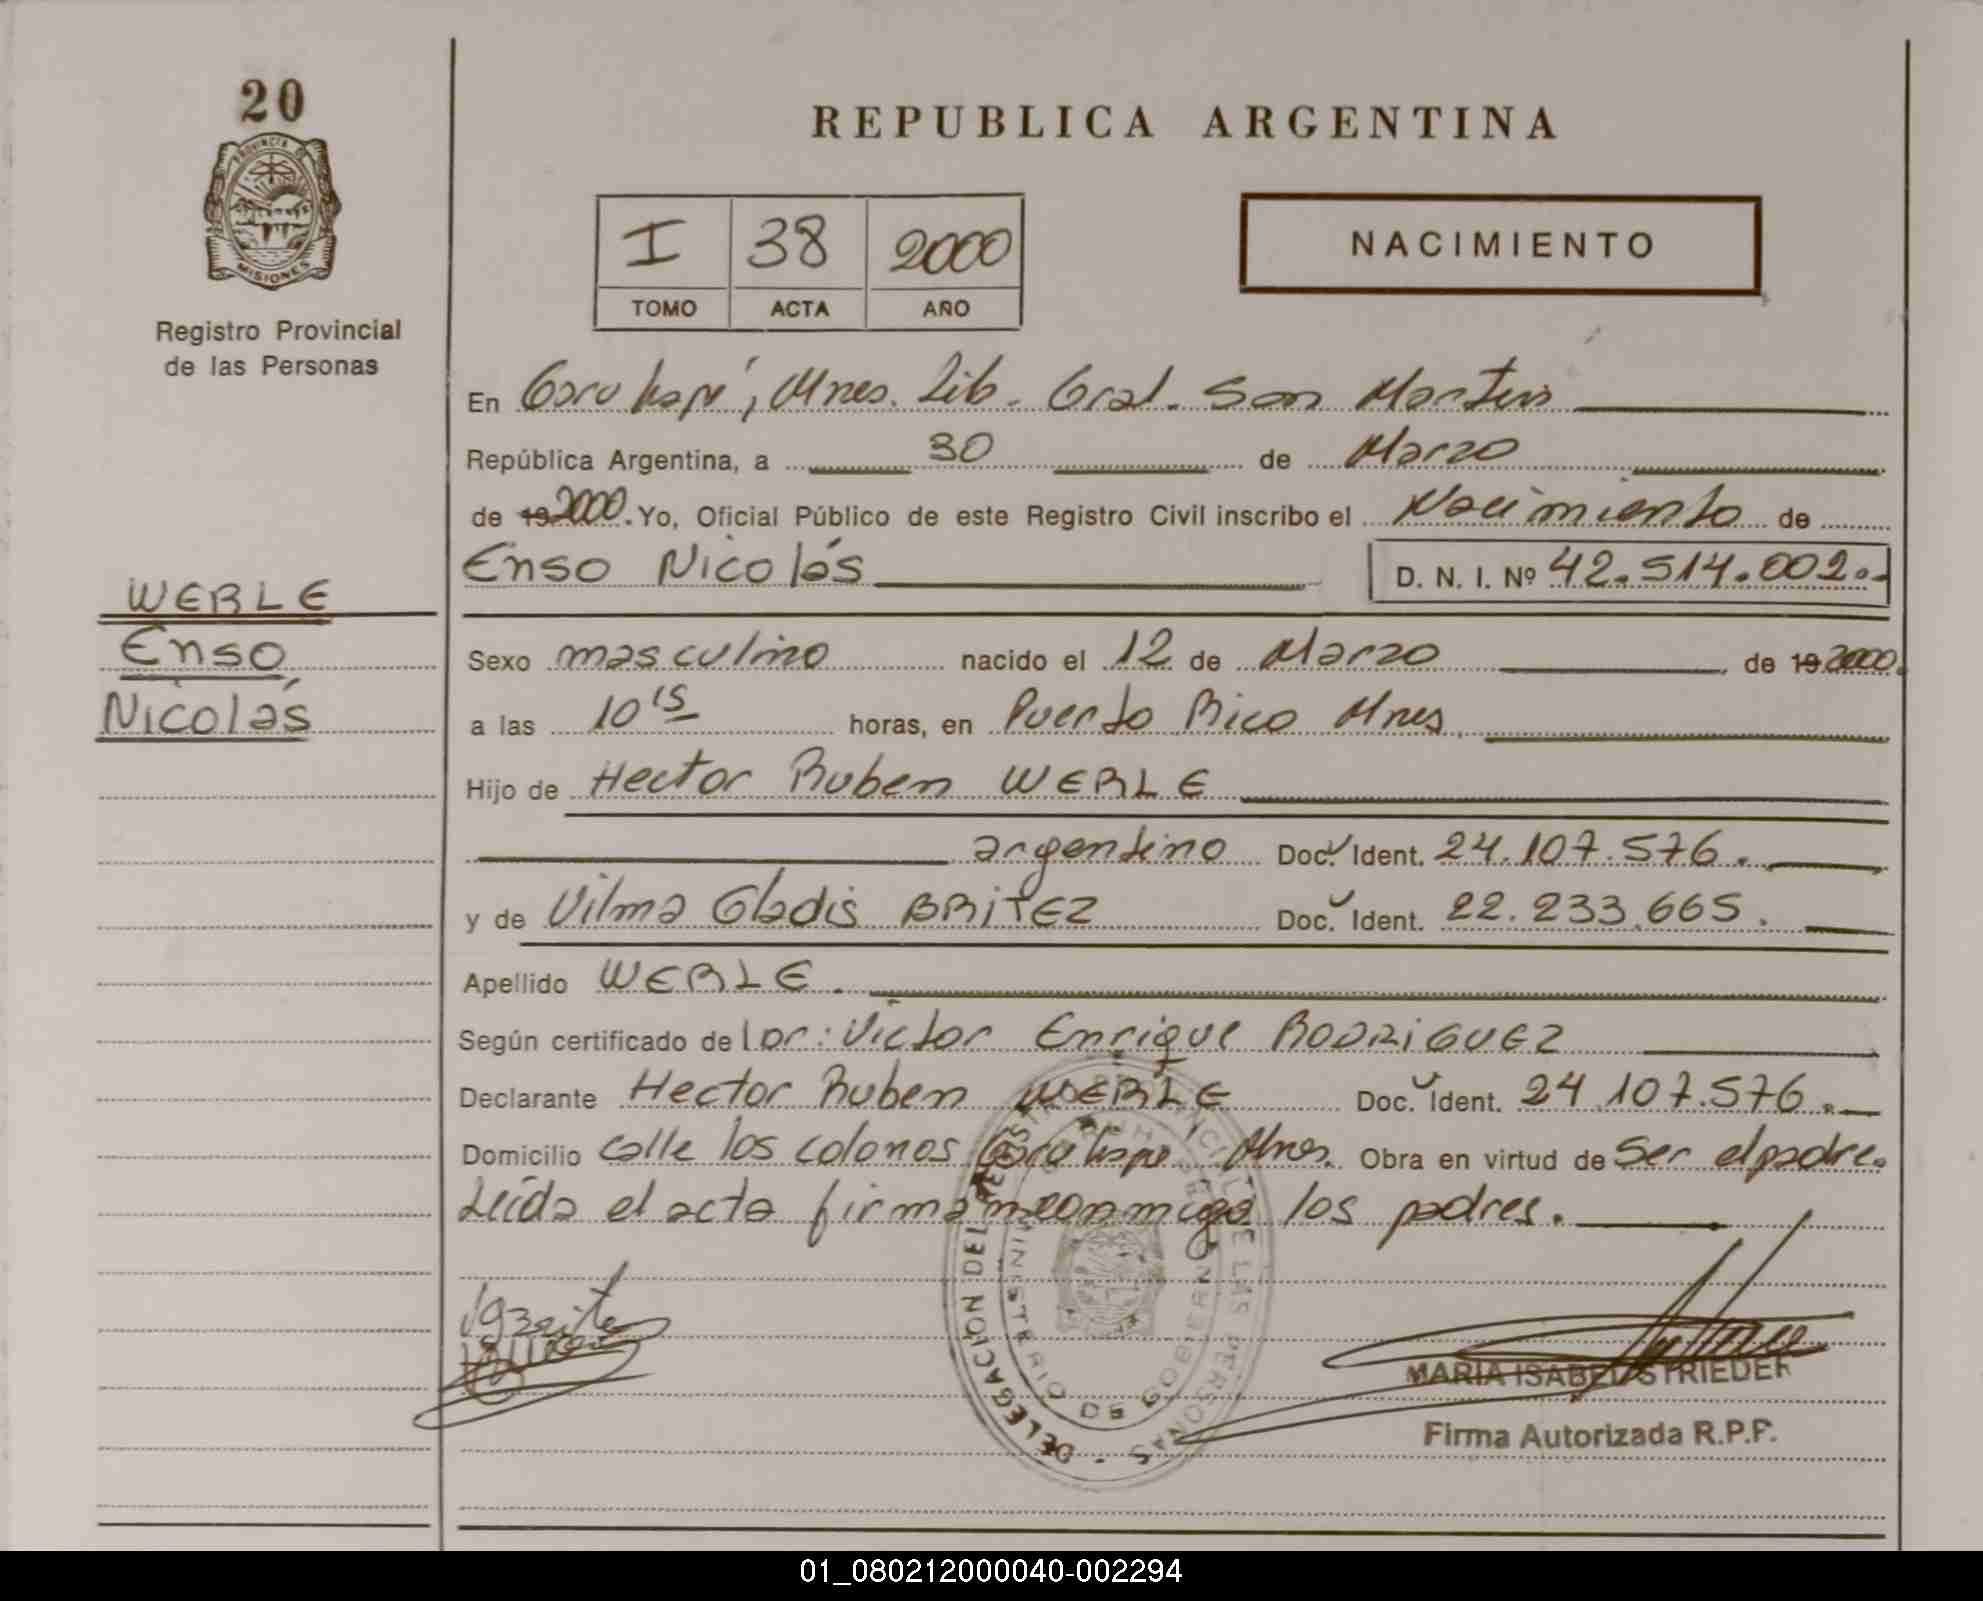 20
PROVINCIA DE
MISIONES
Registro Provincial
de las Personas
WERLE
Enso
Nicolás
REPUBLICA ARGENTINA
I 38 2000
TOMO ACTA AÑO
NACIMIENTO
En Garuhapé, Mnes. Lib. Gral. San Martin
República Argentina, a 30 de Marzo
de 19 2000. Yo, Oficial Público de este Registro Civil inscribo el Nacimiento de
Enso Nicolás D. N. I. Nº 42.514.002.-
Sexo masculino nacido el 12 de Marzo de 19 2000.
a las 10 15 horas, en Puerto Rico Mnes.
Hijo de Hector Ruben WERLE
argentino Doc. Ident. 24.107.576.
y de Vilma Gladis BRITEZ Doc. Ident. 22.233.665.
Apellido WERLE.
Según certificado del Dr: Victor Enrique RODRIGUEZ
Declarante Hector Ruben WERLE Doc. Ident. 24.107.576.
Domicilio calle los colonos Garuhape Mnes. Obra en virtud de Ser el padre.
Leída el acta firman conmigo los padres.
DELEGACION DEL REGISTRO PROVINCIAL DE LAS PERSONAS
MINISTERIO DE GOBIERNO
MARIA ISABEL STRIEDER
Firma Autorizada R.P.P.
01_080212000040-002294